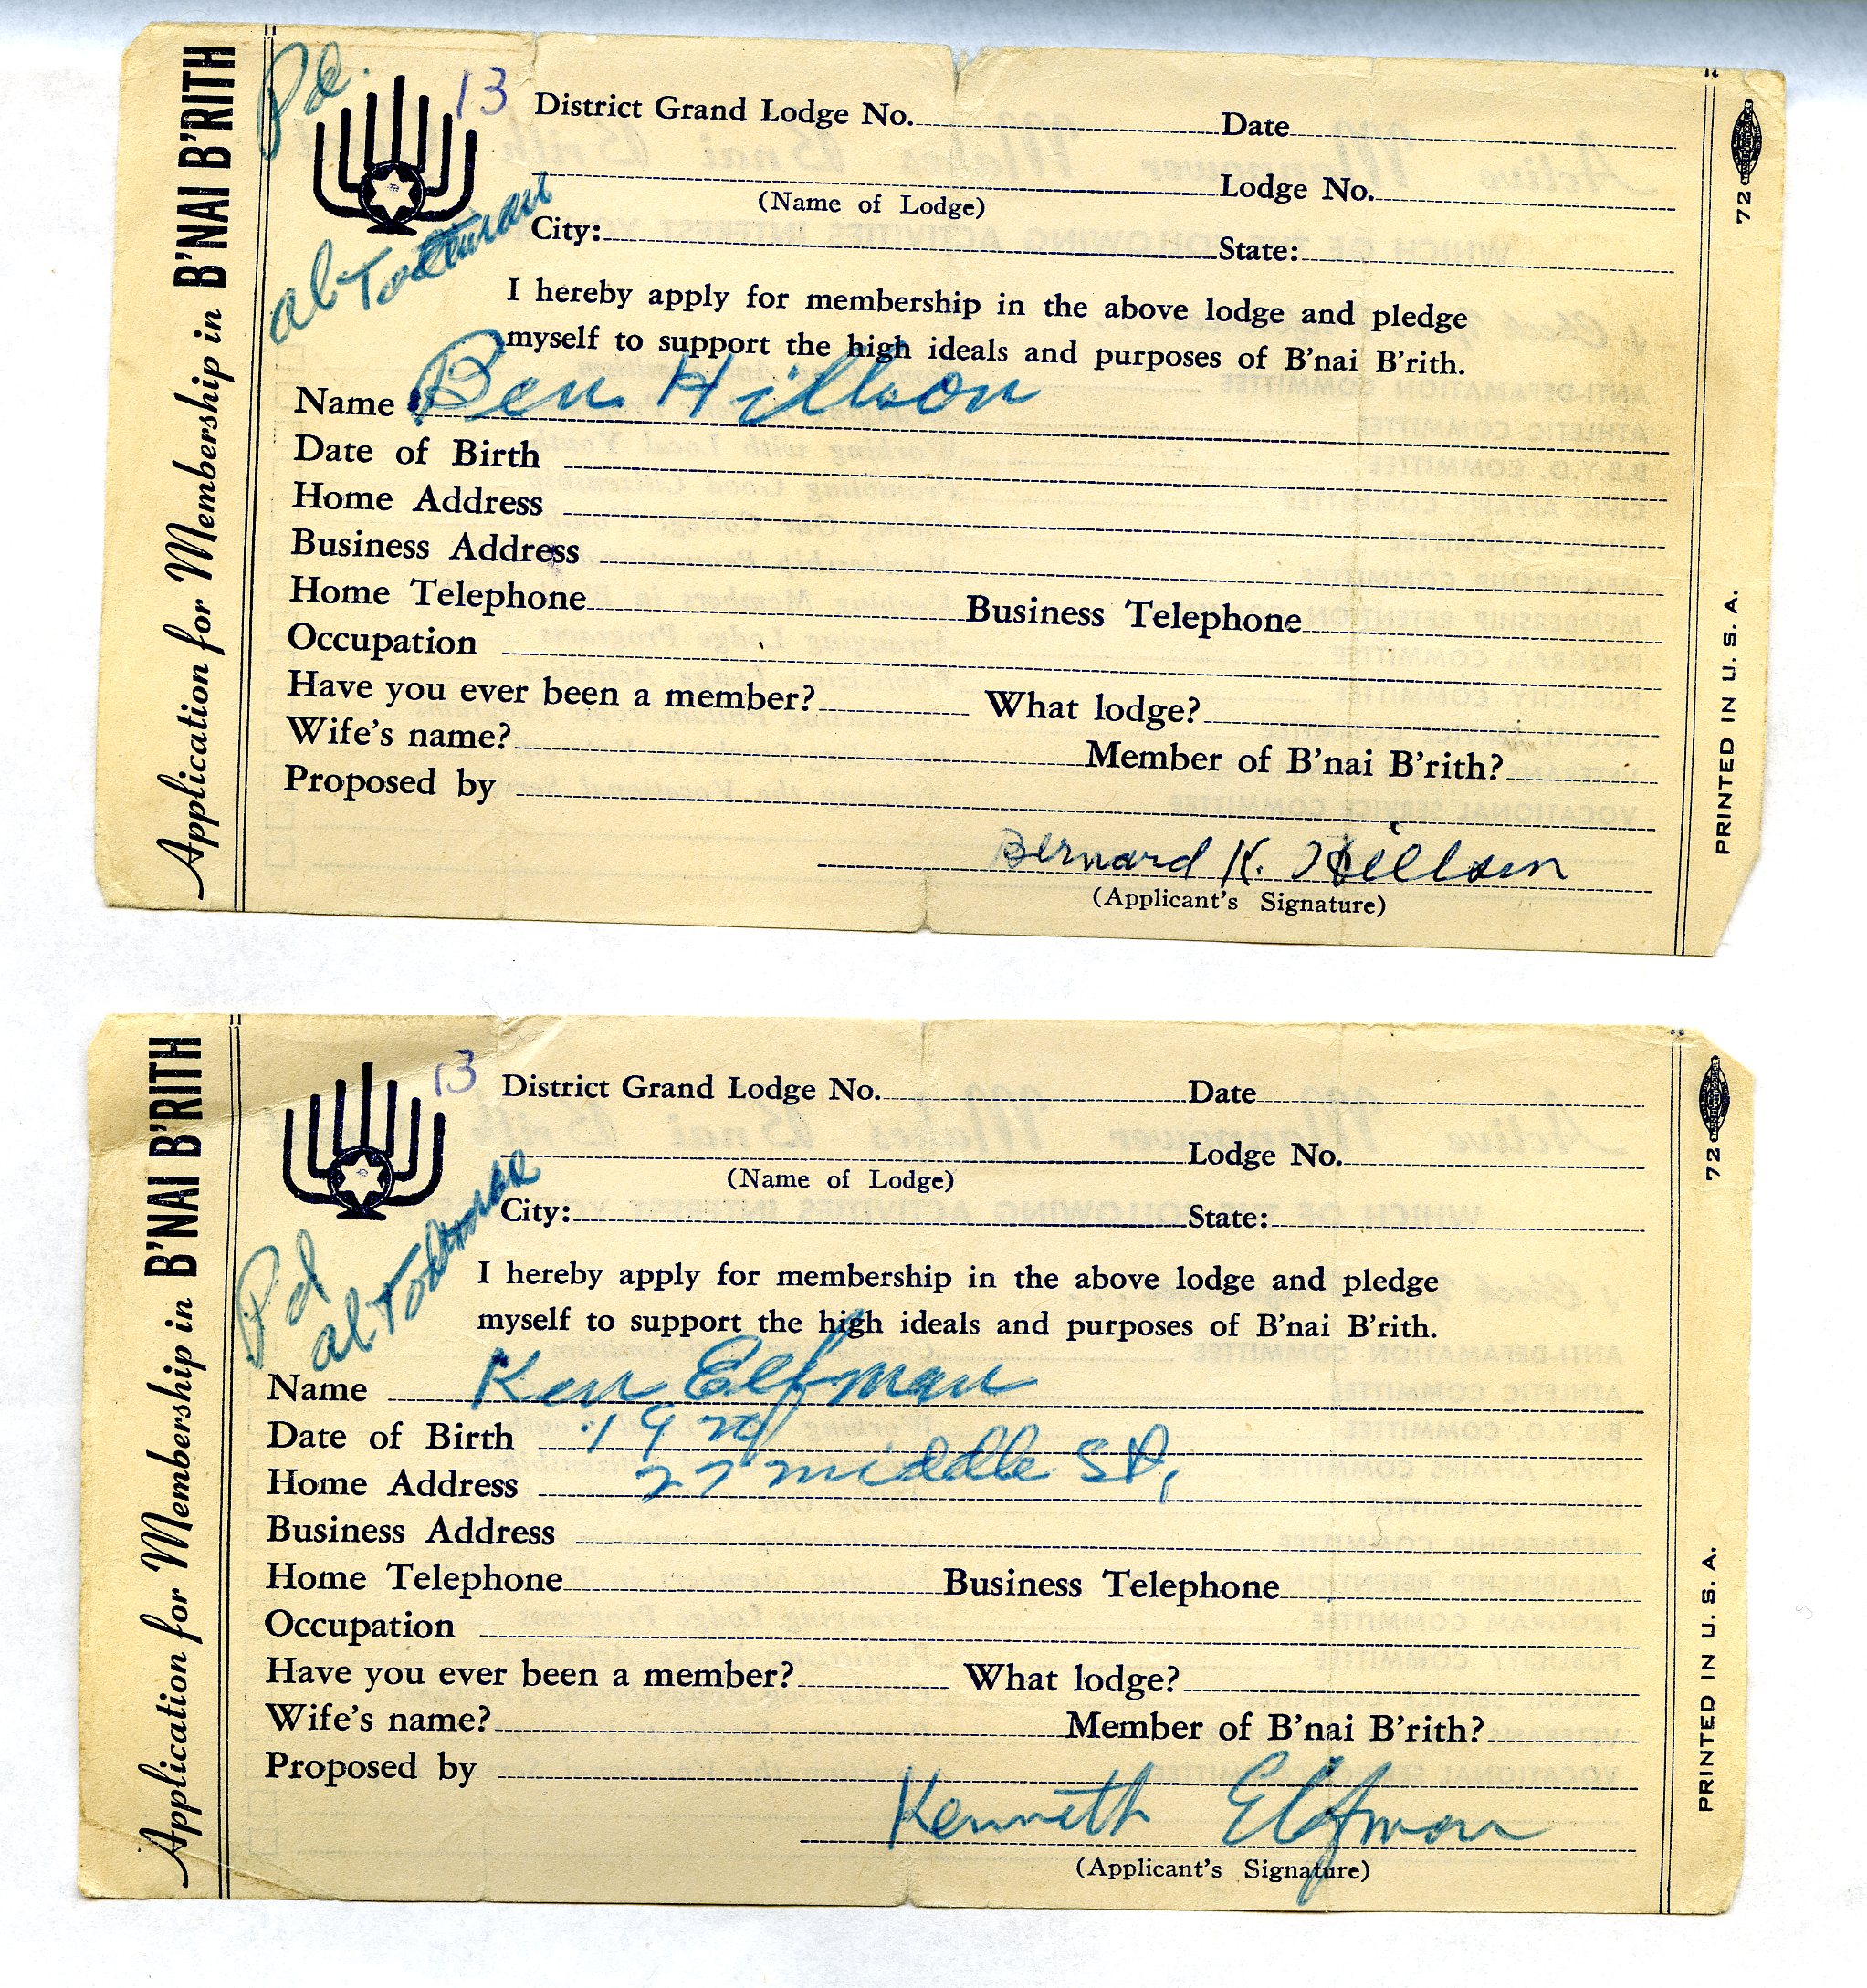 Application for Membership in B'NAI B'RITH
Pd.
13
District Grand Lodge No. Date
Lodge No.
(Name of Lodge)
City: State:
al
I hereby apply for membership in the above lodge and pledge
myself to support the high ideals and purposes of B'nai B'rith.
Name Ben Hillson
Date of Birth
Home Address
Business Address
Home Telephone Business Telephone
Occupation
Have you ever been a member? What lodge?
Wife's name? Member of B'nai B'rith?
Proposed by
Bernard K. Hillson
(Applicant's Signature)
72
PRINTED IN U. S. A.
Application for Membership in B'NAI B'RITH
13
District Grand Lodge No. Date
Lodge No.
(Name of Lodge)
City: State:
Pd
al
I hereby apply for membership in the above lodge and pledge
myself to support the high ideals and purposes of B'nai B'rith.
Name Ken Elfman
Date of Birth
Home Address 27 middle St,
Business Address
Home Telephone Business Telephone
Occupation
Have you ever been a member? What lodge?
Wife's name? Member of B'nai B'rith?
Proposed by
Kenneth Elfman
(Applicant's Signature)
72
PRINTED IN U. S. A.